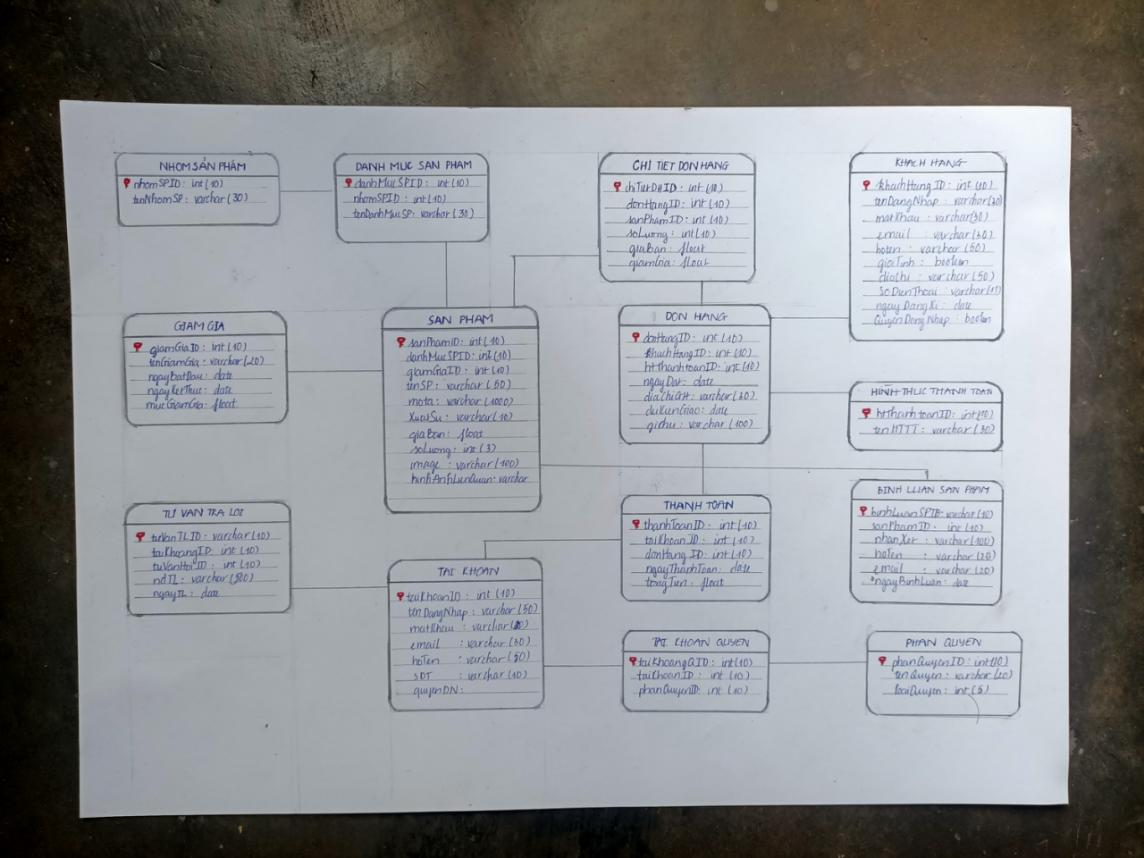 NHOM SẢN PHẨM
nhomSPID : int (10)
tenNhomSP : varchar (30)
DANH MUC SAN PHAM
danhMucSPID : int (10)
nhomSPID : int (10)
tenDanhMucSP : varchar (30)
CHI TIET DON HANG
chiTietDHID : int (10)
donHangID : int (10)
sanPhamID : int (10)
soLuong : int (10)
giaBan : float
giamGia : float
KHACH HANG
khachHangID : int (10)
tenDangNhap : varchar (30)
matKhau : varchar (30)
email : varchar (30)
hoten : varchar (50)
gioiTinh : boolean
diachi : varchar (50)
SoDienThoai : varchar (11)
ngayDangKi : date
QuyenDangNhap : boolen
GIAM GIA
giamGiaID : int (10)
tenGiamGia : varchar (20)
ngayBatDau : date
ngayKetThuc : date
mucGiamGia : float
SAN PHAM
sanPhamID : int (10)
danhMucSPID : int (10)
giamGiaID : int (10)
tenSP : varchar (50)
mota : varchar (1000)
XuatSu : varchar (10)
giaBan : float
soLuong : int (3)
image : varchar (100)
hinhAnhLienQuan : varchar
DON HANG
donHangID : int (10)
khachHangID : int (10)
htThanhtoanID : int (10)
ngayDat : date
diaChiGH : varchar (30)
duKienGiao : date
gichu : varchar (100)
HÌNH THUC THANH TOAN
htThanhtoanID : int (10)
tenHTTT : varchar (30)
BINH LUAN SAN PHAM
binhLuanSPID : varchar (10)
sanPhamID : int (10)
nhanXet : varchar (100)
hoTen : varchar (20)
email : varchar (20)
ngayBinhLuan : date
TU VAN TRA LOI
tuVanTLID : varchar (10)
taiKhoangID : int (10)
tuVanHoiID : int (10)
ndTL : varchar (500)
ngayTL : date
THANH TOAN
thanhToanID : int (10)
taiKhoanID : int (10)
donHangID : int (10)
ngayThanhToan : date
tongTien : float
TAI KHOAN
taiKhoanID : int (10)
tenDangNhap : varchar (50)
matKhau : varchar (30)
email : varchar (50)
hoTen : varchar (50)
SDT : varchar (10)
quyenDN :
TAI KHOAN QUYEN
taiKhoangQID : int (10)
taiKhoanID : int (10)
phanQuyenID : int (10)
PHAN QUYEN
phanQuyenID : int (10)
tenQuyen : varchar (20)
loaiQuyen : int (5)